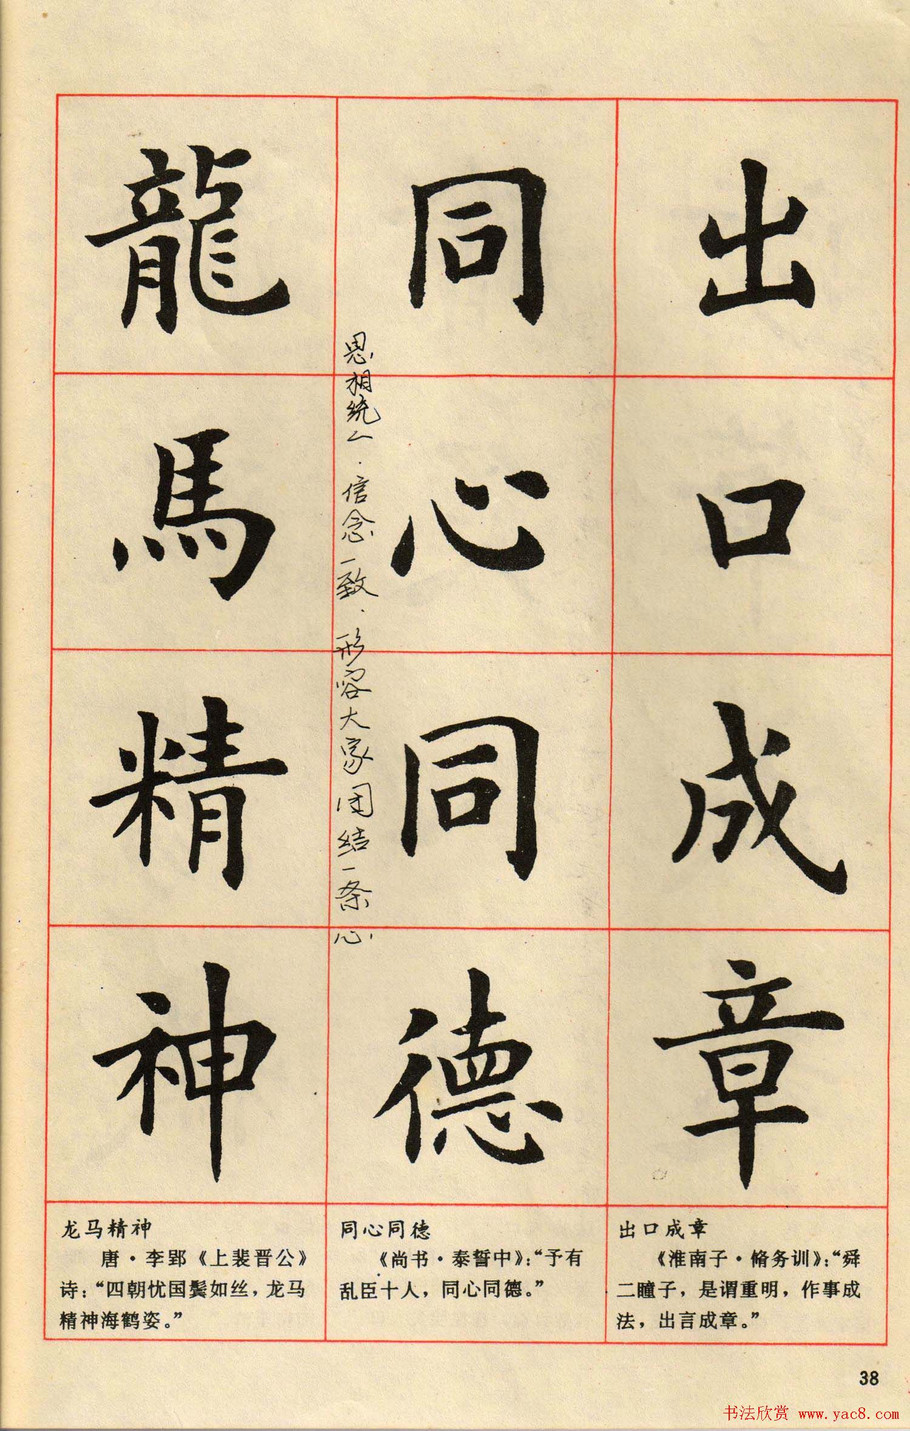 出口成章
同心同德
思相统一．信念一致．形容大家团结一条心．
龍馬精神
出口成章
《淮南子·脩务训》：“舜
二瞳子，是谓重明，作事成
法，出言成章。”
同心同德
《尚书·泰誓中》：“予有
乱臣十人，同心同德。”
龙马精神
唐·李郢《上裴晋公》
诗：“四朝忧国鬓如丝，龙马
精神海鹤姿。”
38
书法欣赏 www.yac8.com